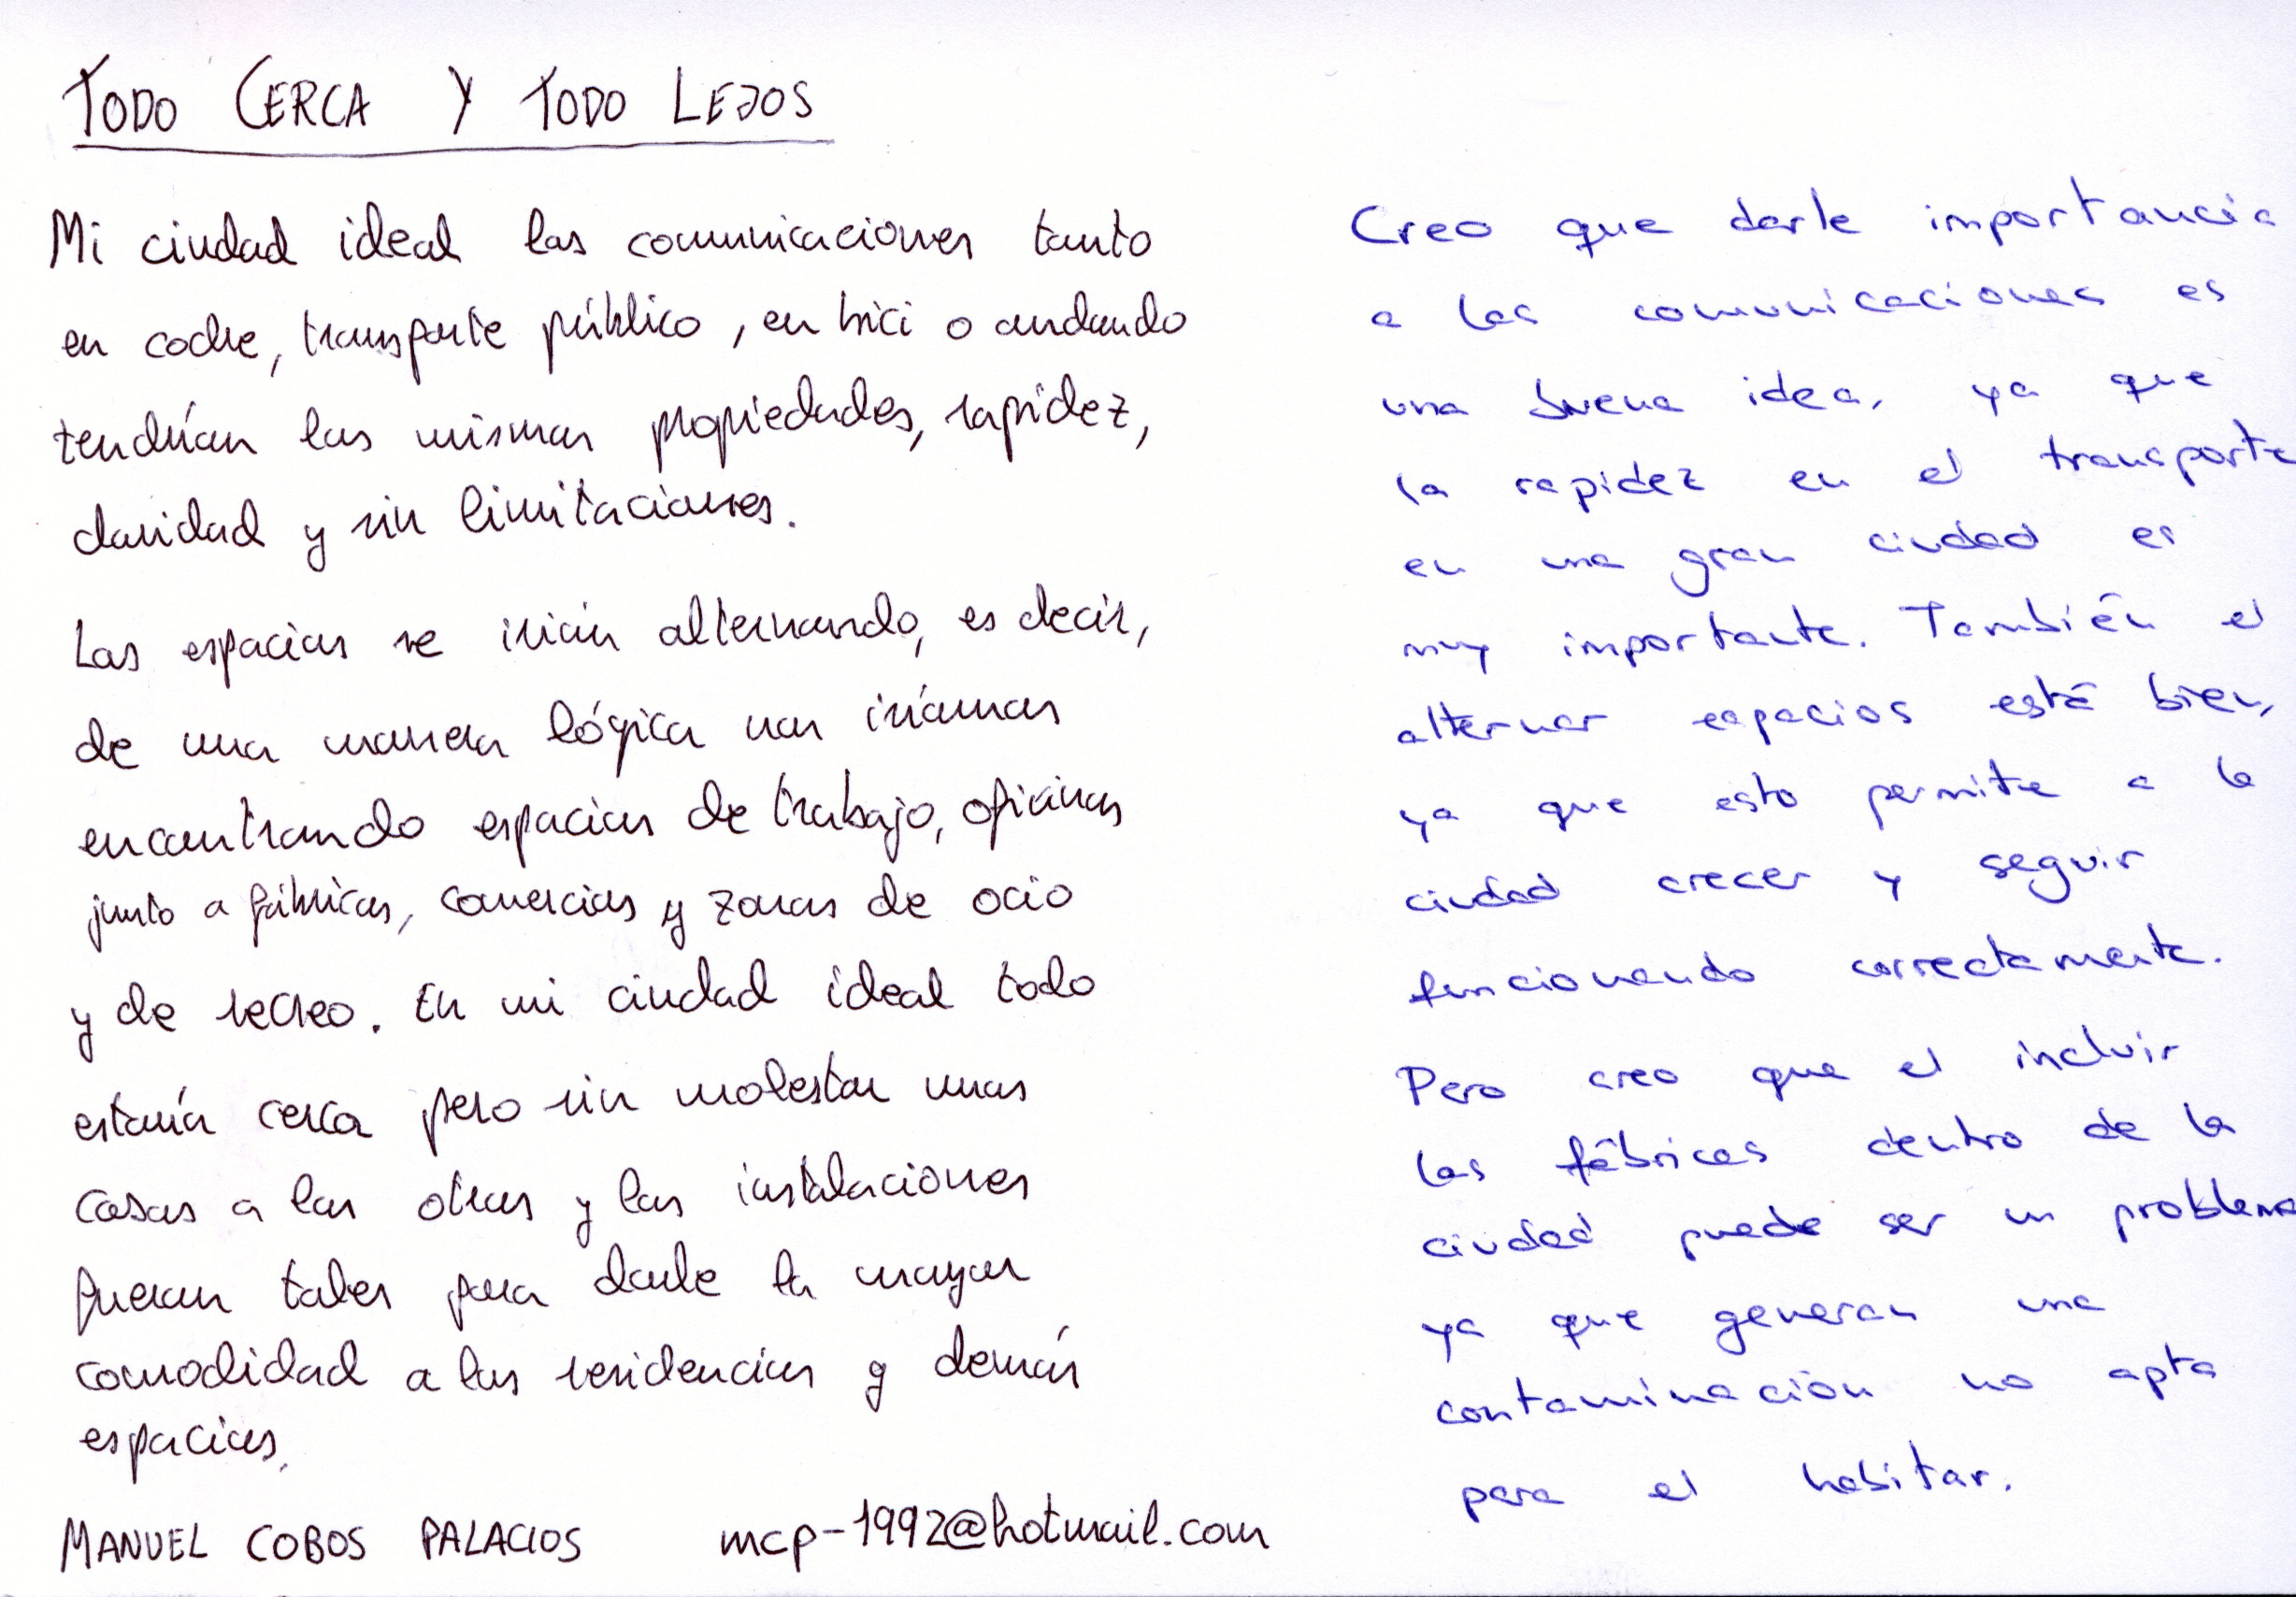 TODO CERCA Y TODO LEJOS
Mi ciudad ideal las comunicaciones tanto
en coche, transporte público, en bici o andando
tendrían las mismas propiedades, rapidez,
claridad y sin limitaciones.
Los espacios se irían alternando, es decir,
de una manera lógica nos iríamos
encontrando espacios de trabajo, oficinas
junto a fábricas, comercios y zonas de ocio
y de recreo. En mi ciudad ideal todo
estaría cerca pero sin molestar unas
cosas a las otras y las instalaciones
fueran tales para darle la mayor
comodidad a las residencias y demás
espacios.
MANUEL COBOS PALACIOS mcp-1992@hotmail.com
Creo que darle importancia
a las comunicaciones es
una buena idea, ya que
la rapidez en el transporte
en una gran ciudad es
muy importante. También el
alternar espacios está bien,
ya que esto permite a la
ciudad crecer y seguir
funcionando correctamente.
Pero creo que el incluir
las fábricas dentro de la
ciudad puede ser un problema
ya que generan una
contaminación no apta
para el habitar.